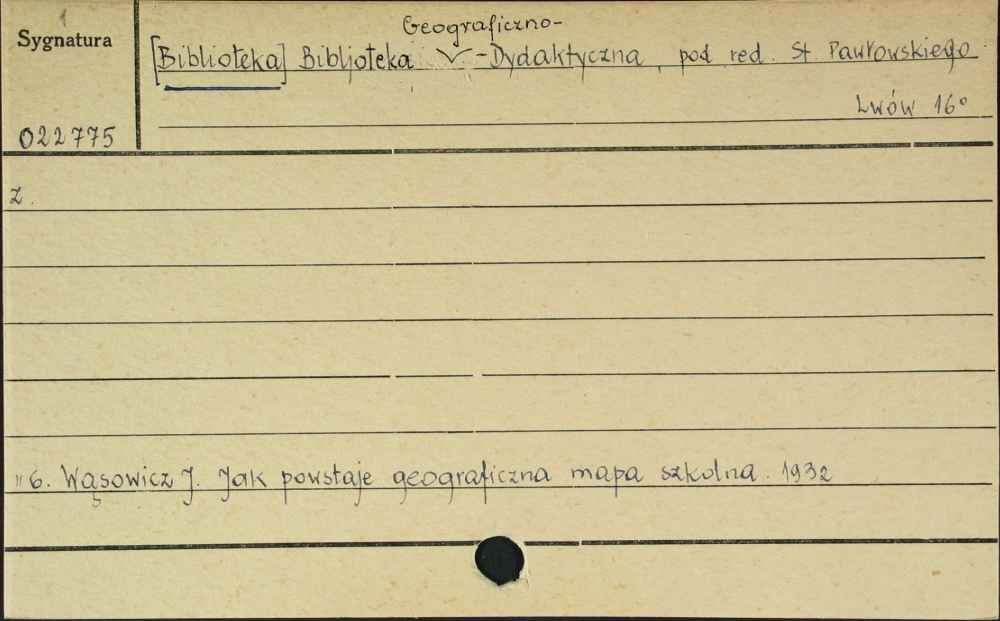 Sygnatura
Geograficzno-
[Biblioteka] Bibljoteka V -Dydaktyczna, pod red. St. Pawłowskiego
Lwów 16°
022775
z.
" 6. Wąsowicz J. Jak powstaje geograficzna mapa szkolna. 1932